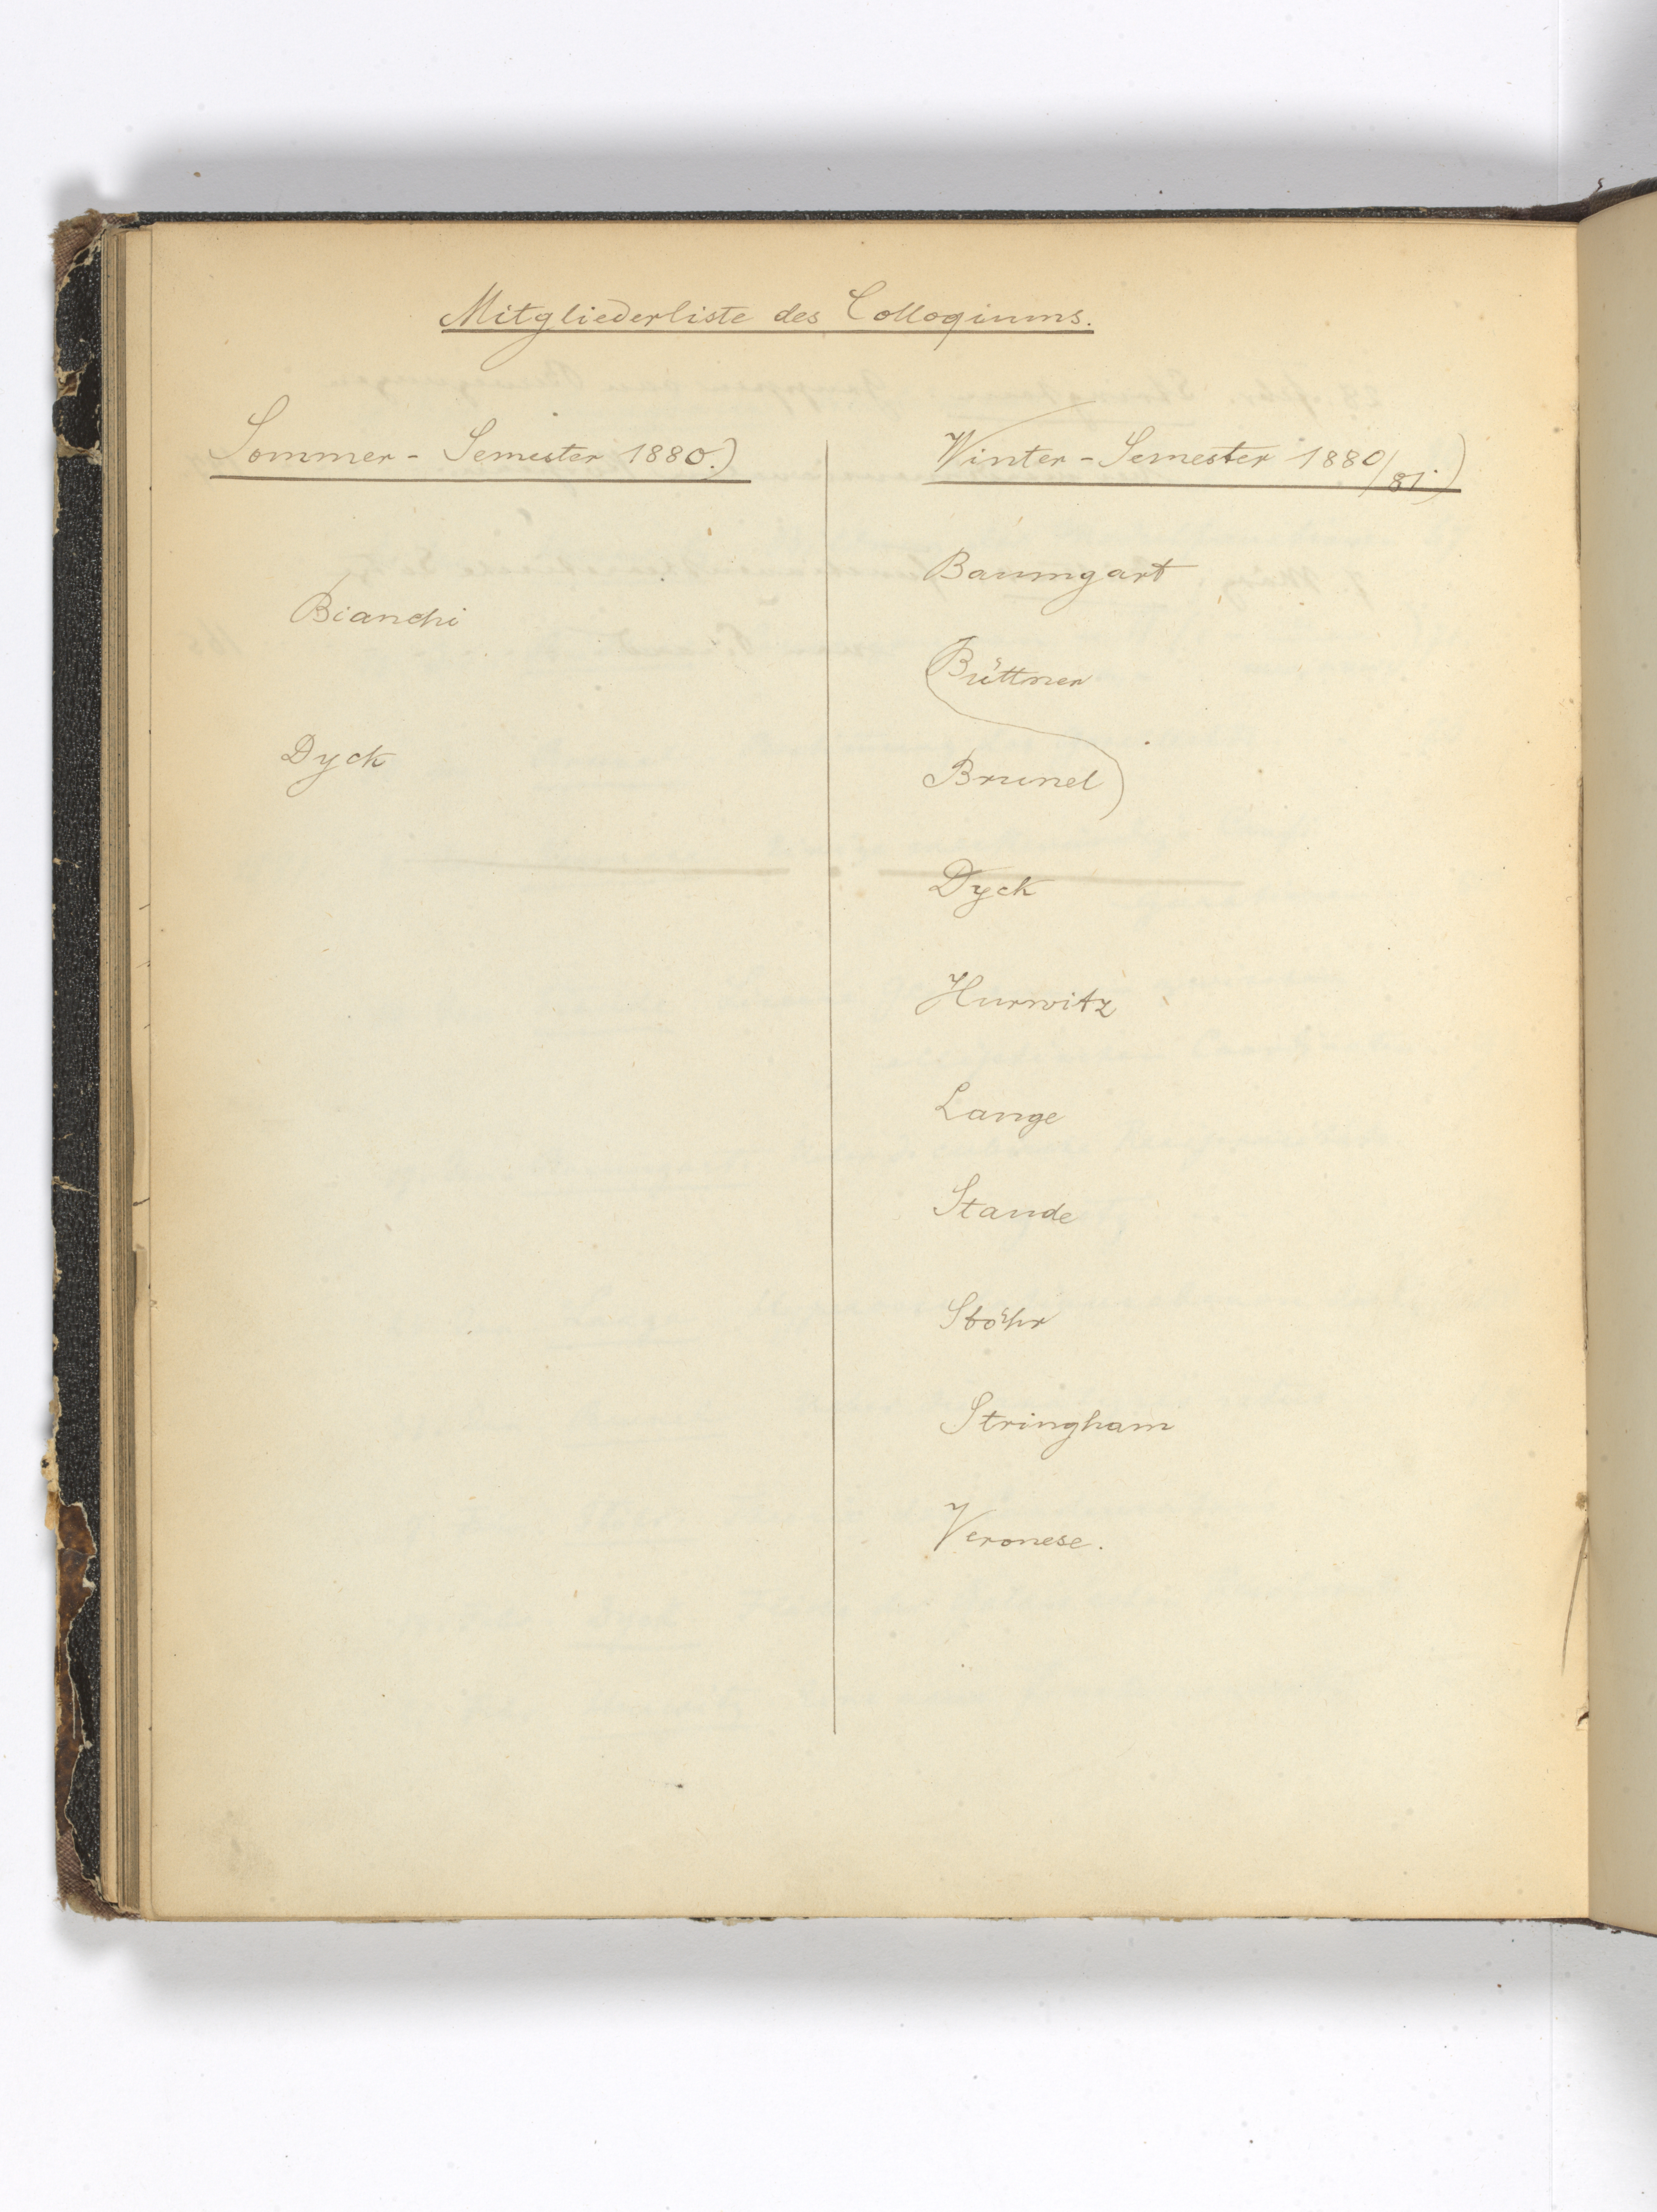 Mitgliederliste des Colloqiums.
Sommer - Semester 1880.)
Bianchi
Dyck
Winter - Semester 1880/81.)
Baumgart
Büttner
Brunel)
Dyck
Hurwitz
Lange
Staude
Stöhr
Stringham
Veronese.